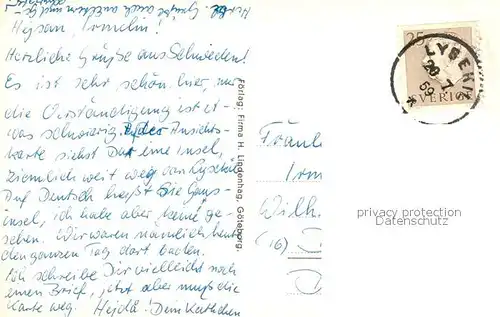 Hejsan, Irmelin!
Herzliche Grüße aus Schweden!
Es ist sehr schön hier, nur
die Verständigung ist et-
was schwierig. Ansichts-
karte siehst Du eine Insel,
ziemlich weit weg von Lysekil
Auf Deutsch heißt sie Gans-
insel, ich habe aber keine ge-
sehen. Wir waren nämlich heute
den ganzen Tag dort baden.
Ich schreibe Dir vielleicht noch
einen Brief, jetzt aber muß die
Karte weg. Hejdå! Dein Kathchen
Förlag: Firma H. Lindenhag, Göteborg.
25
LYSEKIL
59
SVERIGE
Fräule
Irm
Wilh.
(16)
privacy protection
Datenschutz